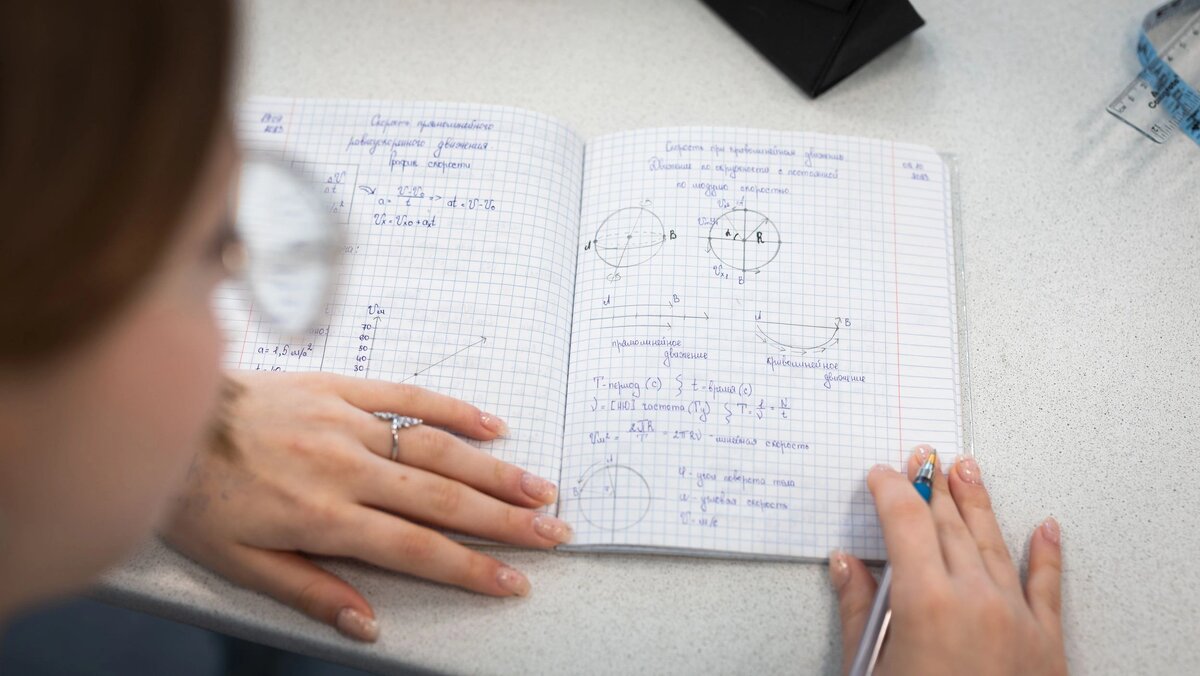 2023
Скорость прямолинейного
равноускоренного движения.
График скорости
a = V-V₀/t => at = V-V₀
Vₓ = Vₓ₀ + aₓt
a = 1,5 м/с²
70
60
50
40
30
Скорость при криволинейная движению
03.10
2023
Движение по окружности с постоянной
по модулю скоростью
A
B
A
R
B
A
B
прямолинейное
движение
A
B
криволинейное
движение
T - период (с) } t = время (с)
ν = [НЮ] частота (Гц) } T = t/ν = N/t
= 2πR/T = 2πRν - линейная скорость
A
B
φ - угол поворота тела
ω - угловая скорость
V = м/с